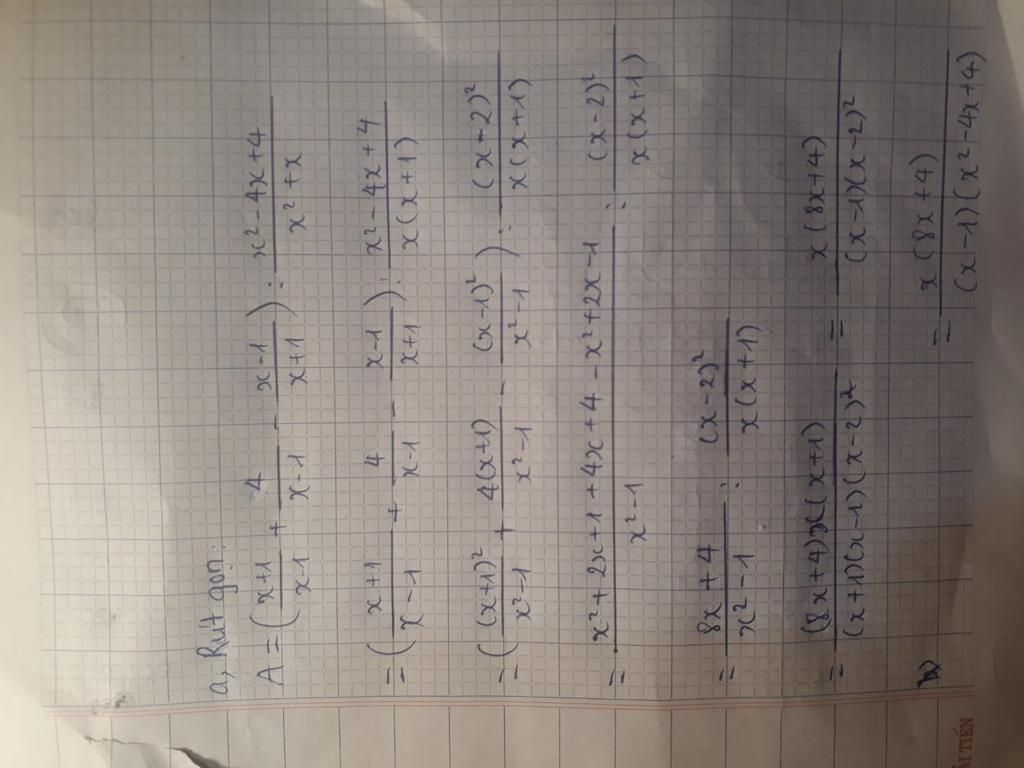 a, Rút gọn:
A = (x+1/x-1 + 4/x-1 - x-1/x+1) : x²-4x+4/x²+x
= (x+1/x-1 + 4/x-1 - x-1/x+1) : x²-4x+4/x(x+1)
= ((x+1)²/x²-1 + 4(x+1)/x²-1 - (x-1)²/x²-1) : (x-2)²/x(x+1)
= x²+2x+1+4x+4-x²+2x-1/x²-1 : (x-2)²/x(x+1)
= 8x+4/x²-1 : (x-2)²/x(x+1)
= (8x+4)x(x+1)/(x+1)(x-1)(x-2)² = x(8x+4)/(x-1)(x-2)²
= x(8x+4)/(x-1)(x²-4x+4)